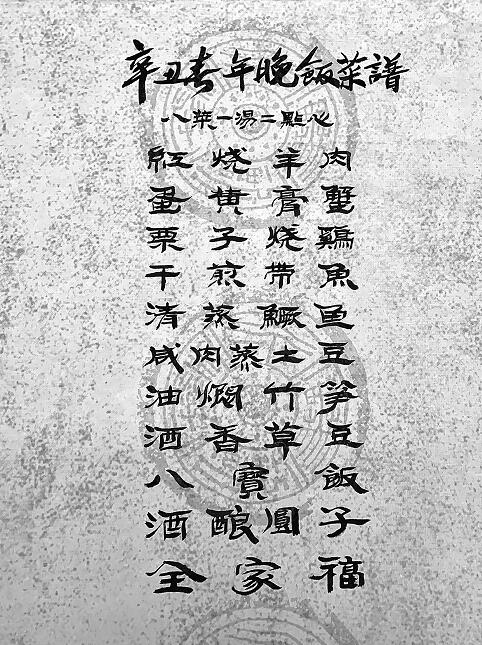 辛丑春年晚飯菜譜
八菜一湯二點心
紅烧羊肉
蛋黄膏蟹
栗子烧鷄
干煎带魚
清蒸鱖鱼
咸肉蒸土豆
油焖竹笋
酒香草豆
八寶飯
酒酿圓子
全家福